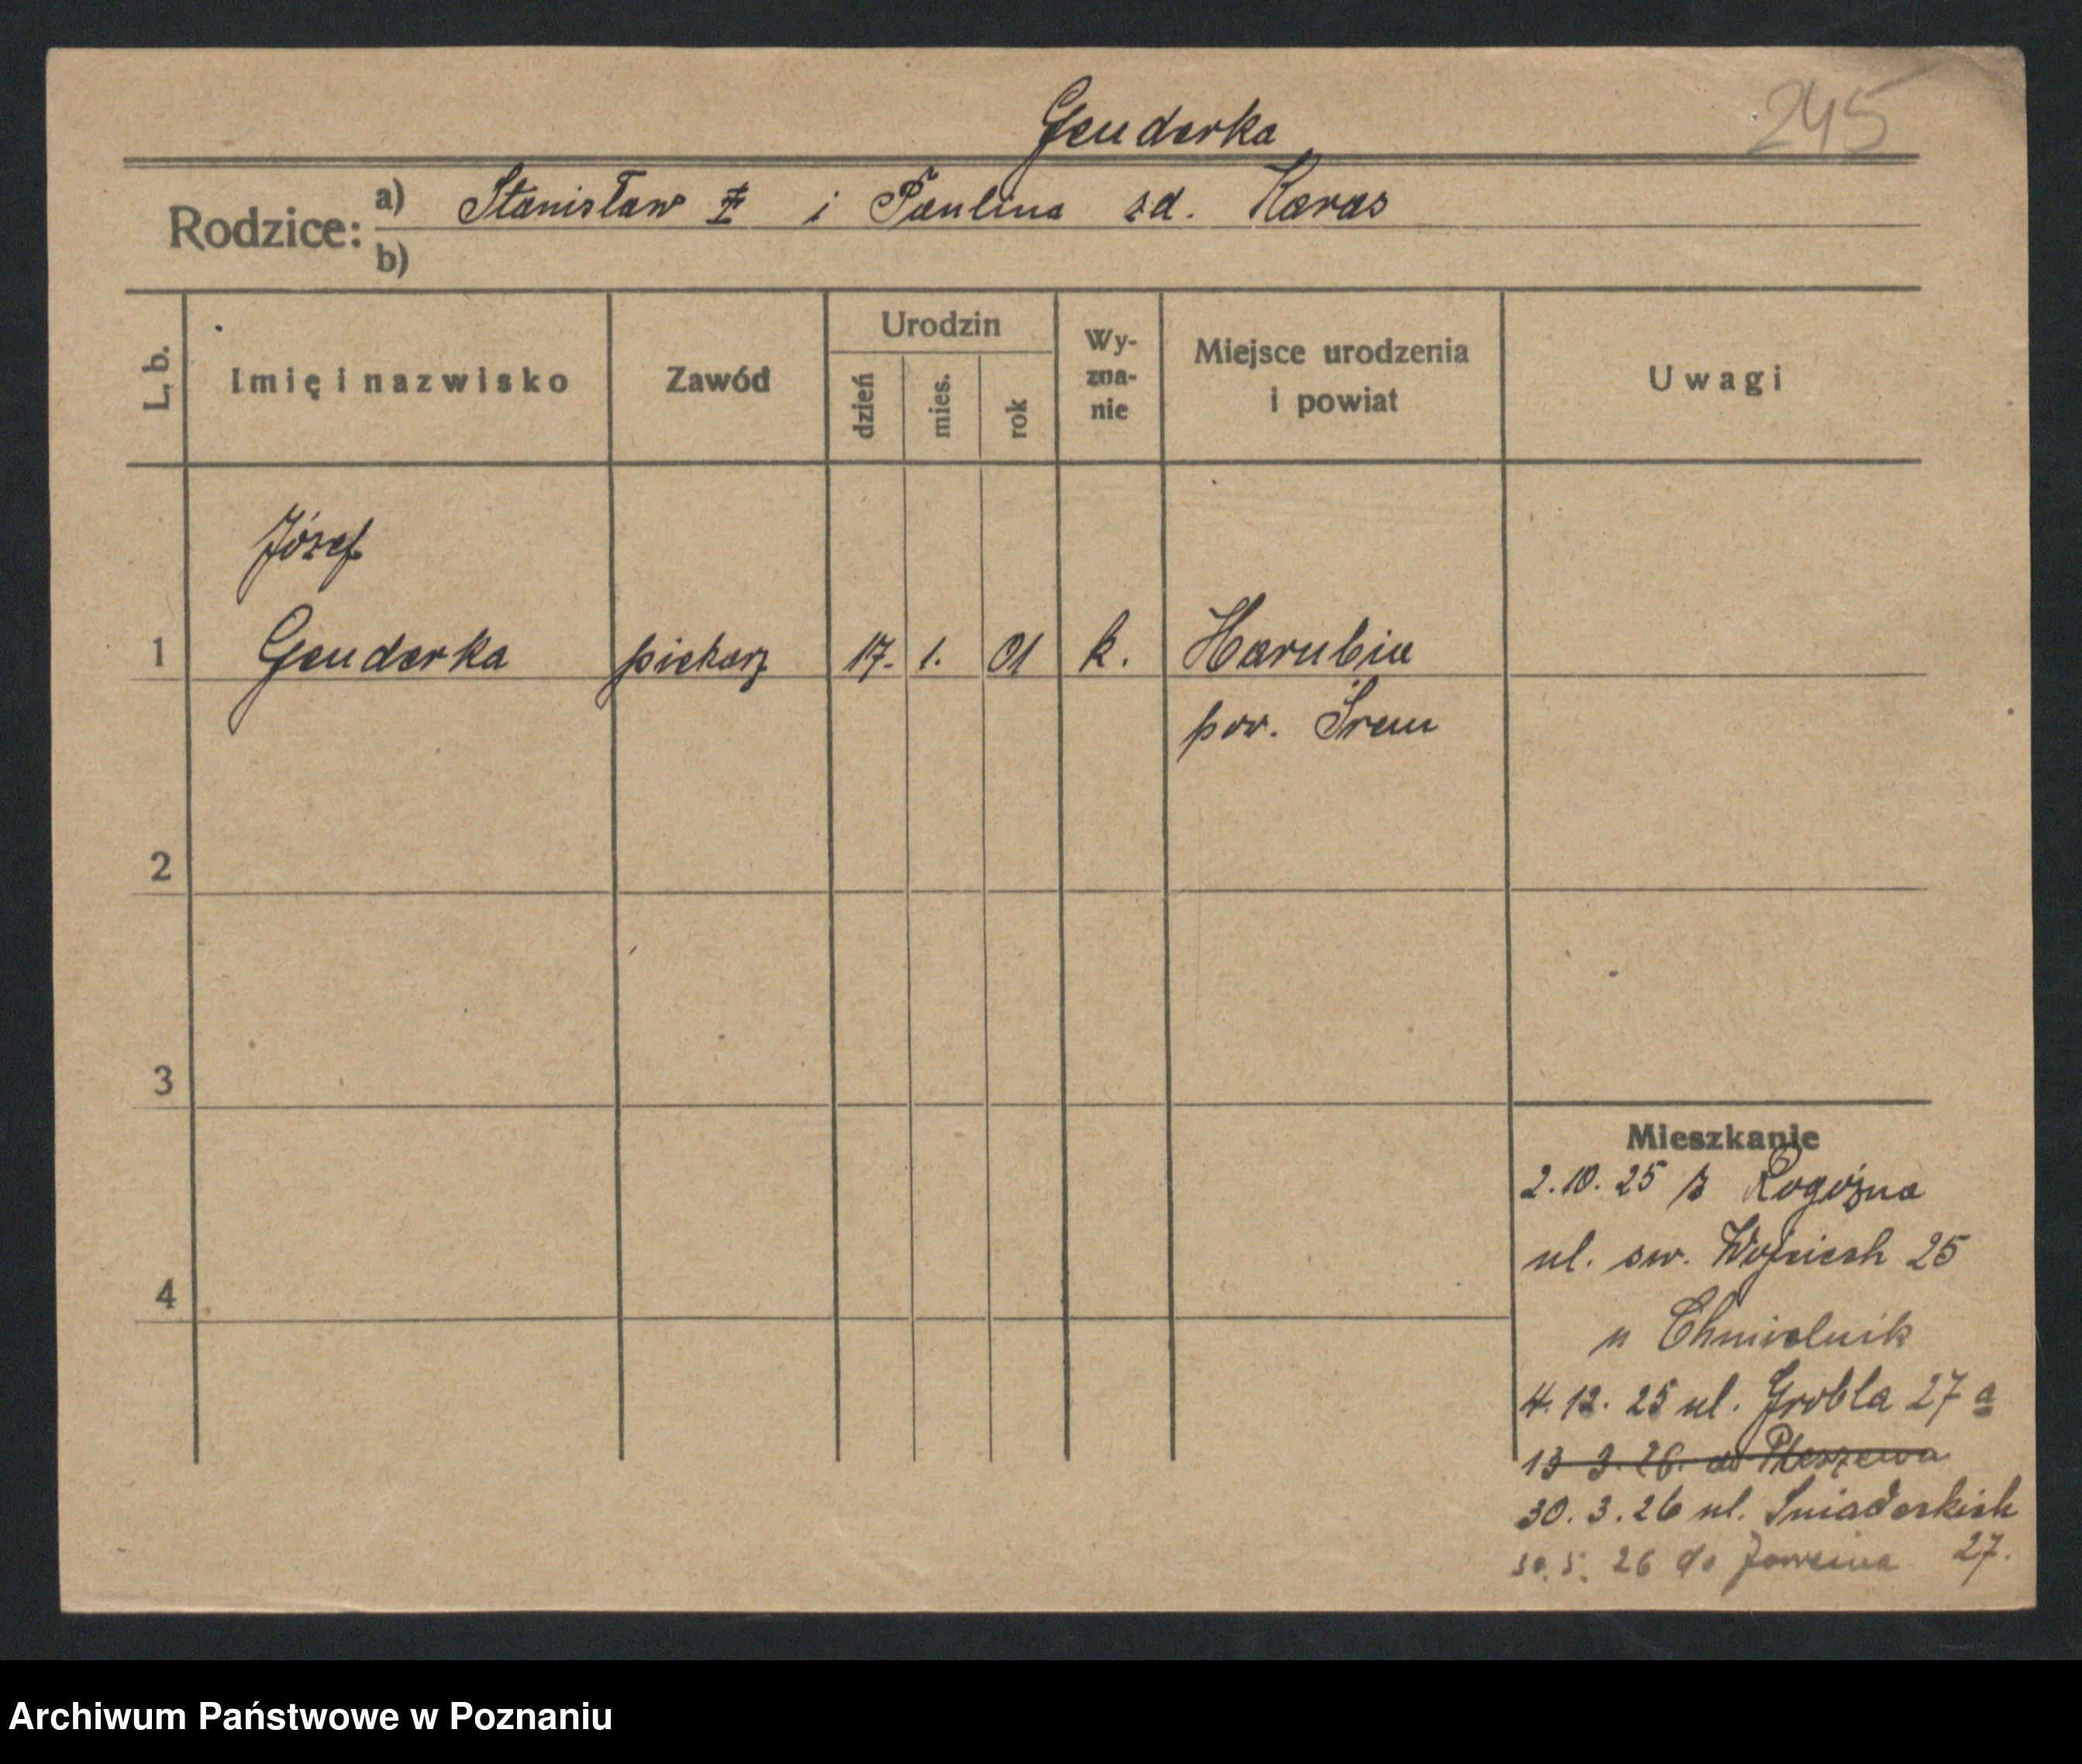 Genderka
245
Rodzice: a) Stanisław i Paulina zd. Karas
b)
L. b. Imię i nazwisko Zawód Urodzin dzień mies. rok Wy-zna-nie Miejsce urodzenia i powiat Uwagi
Józef
1 Genderka piekarz 17. 1. 01 k. Harubin
pow. Śrem
2
3
4
Mieszkanie
2.10.25 z Rogoźna
ul. sw. Wojciech 25
u Chmielnik
4.12.25 ul. Grobla 27 a
13 3.26. do Pleszewa
30.3.26 ul. Sniadeckich
27.
26 do
Archiwum Państwowe w Poznaniu